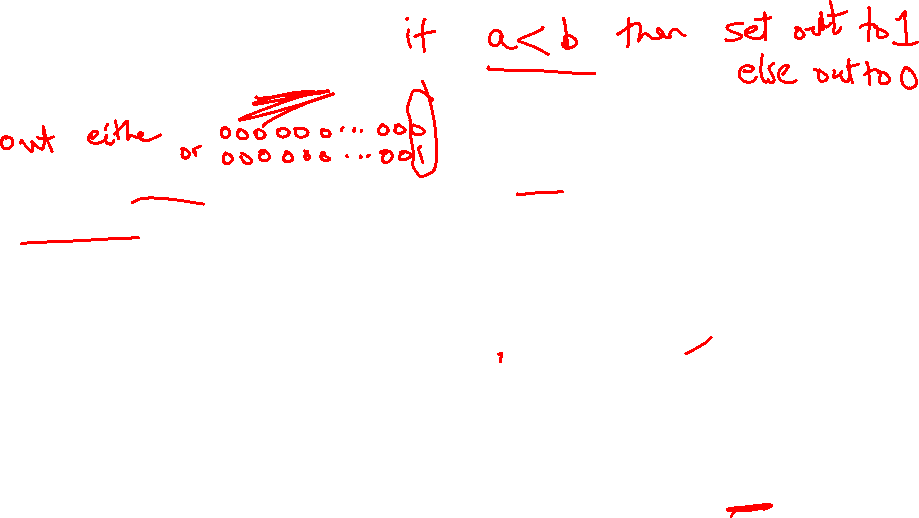 if a<b then set out to 1
else out to 0
out either 000000...000
or 000000...001